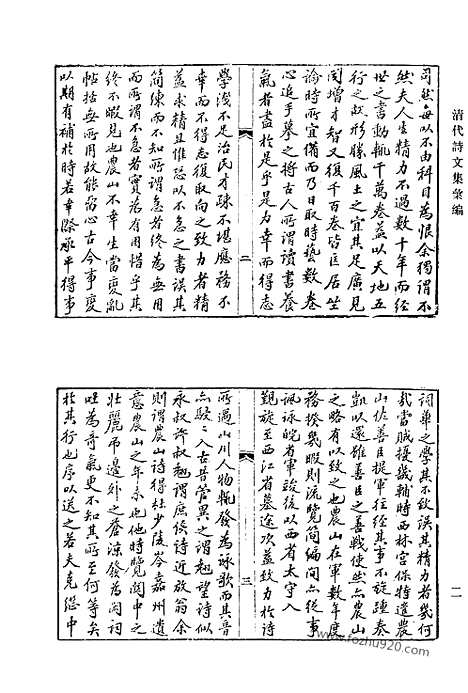 清代詩文集彙編
司然每以不由科目為恨余獨謂不
然夫人生精力不過數十年而經
世之書動輒千萬卷益以天地五
行之妙形勝風土之宜其足廣見
聞增才智又復千百卷皆匡居坐
論時所宜備而乃日取時藝數卷
心追手摹之將古人所謂讀書養
氣者盡於是乎是力幸而得志
學淺不足治民才疎不堪應務不
幸而不得志復取向之致力者精
益求精且惟恐以不急之書誤其
簡練而不知所謂急者終為無用
而所謂不急者實為有用惜乎其
終不暇見也農山不幸生當變亂
帖括每所用故能留心古今事變
以期有補於時若幸際承平得事
二
詞華之學其不致誤其精力者幾何
哉當賊擾畿輔時西林宮保特遣農
山佐善臣提軍往經其事不旋踵奏
凱以還雖善臣之善戰使然亦農山
之略有以致之也農山在軍數年度
務揆幾暇則流覽簡編間亦從事
諷詠皖省軍竣後以西省太守入
覲旋至西江省墓途次益致力於詩
所過山川人物輒發為詠歌而其音
亦駸駸入古昔管異之謂越望詩似
永叔許叔翹謂庶侯詩近放翁余
則謂農山詩得杜少陵岑嘉州遺
意農山之年未艾他時覽關中之
壯麗弔邊外之蒼涼發為閎詞
吐為奇氣更不知其所至何等矣
於其行也序以送之若夫克繼中
三
二